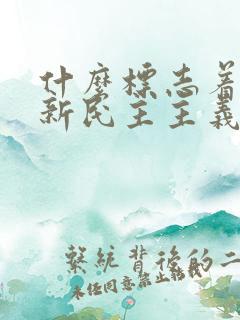 什麼標志着
新民主主義
繫統背後的二
未任同意禁止轉載